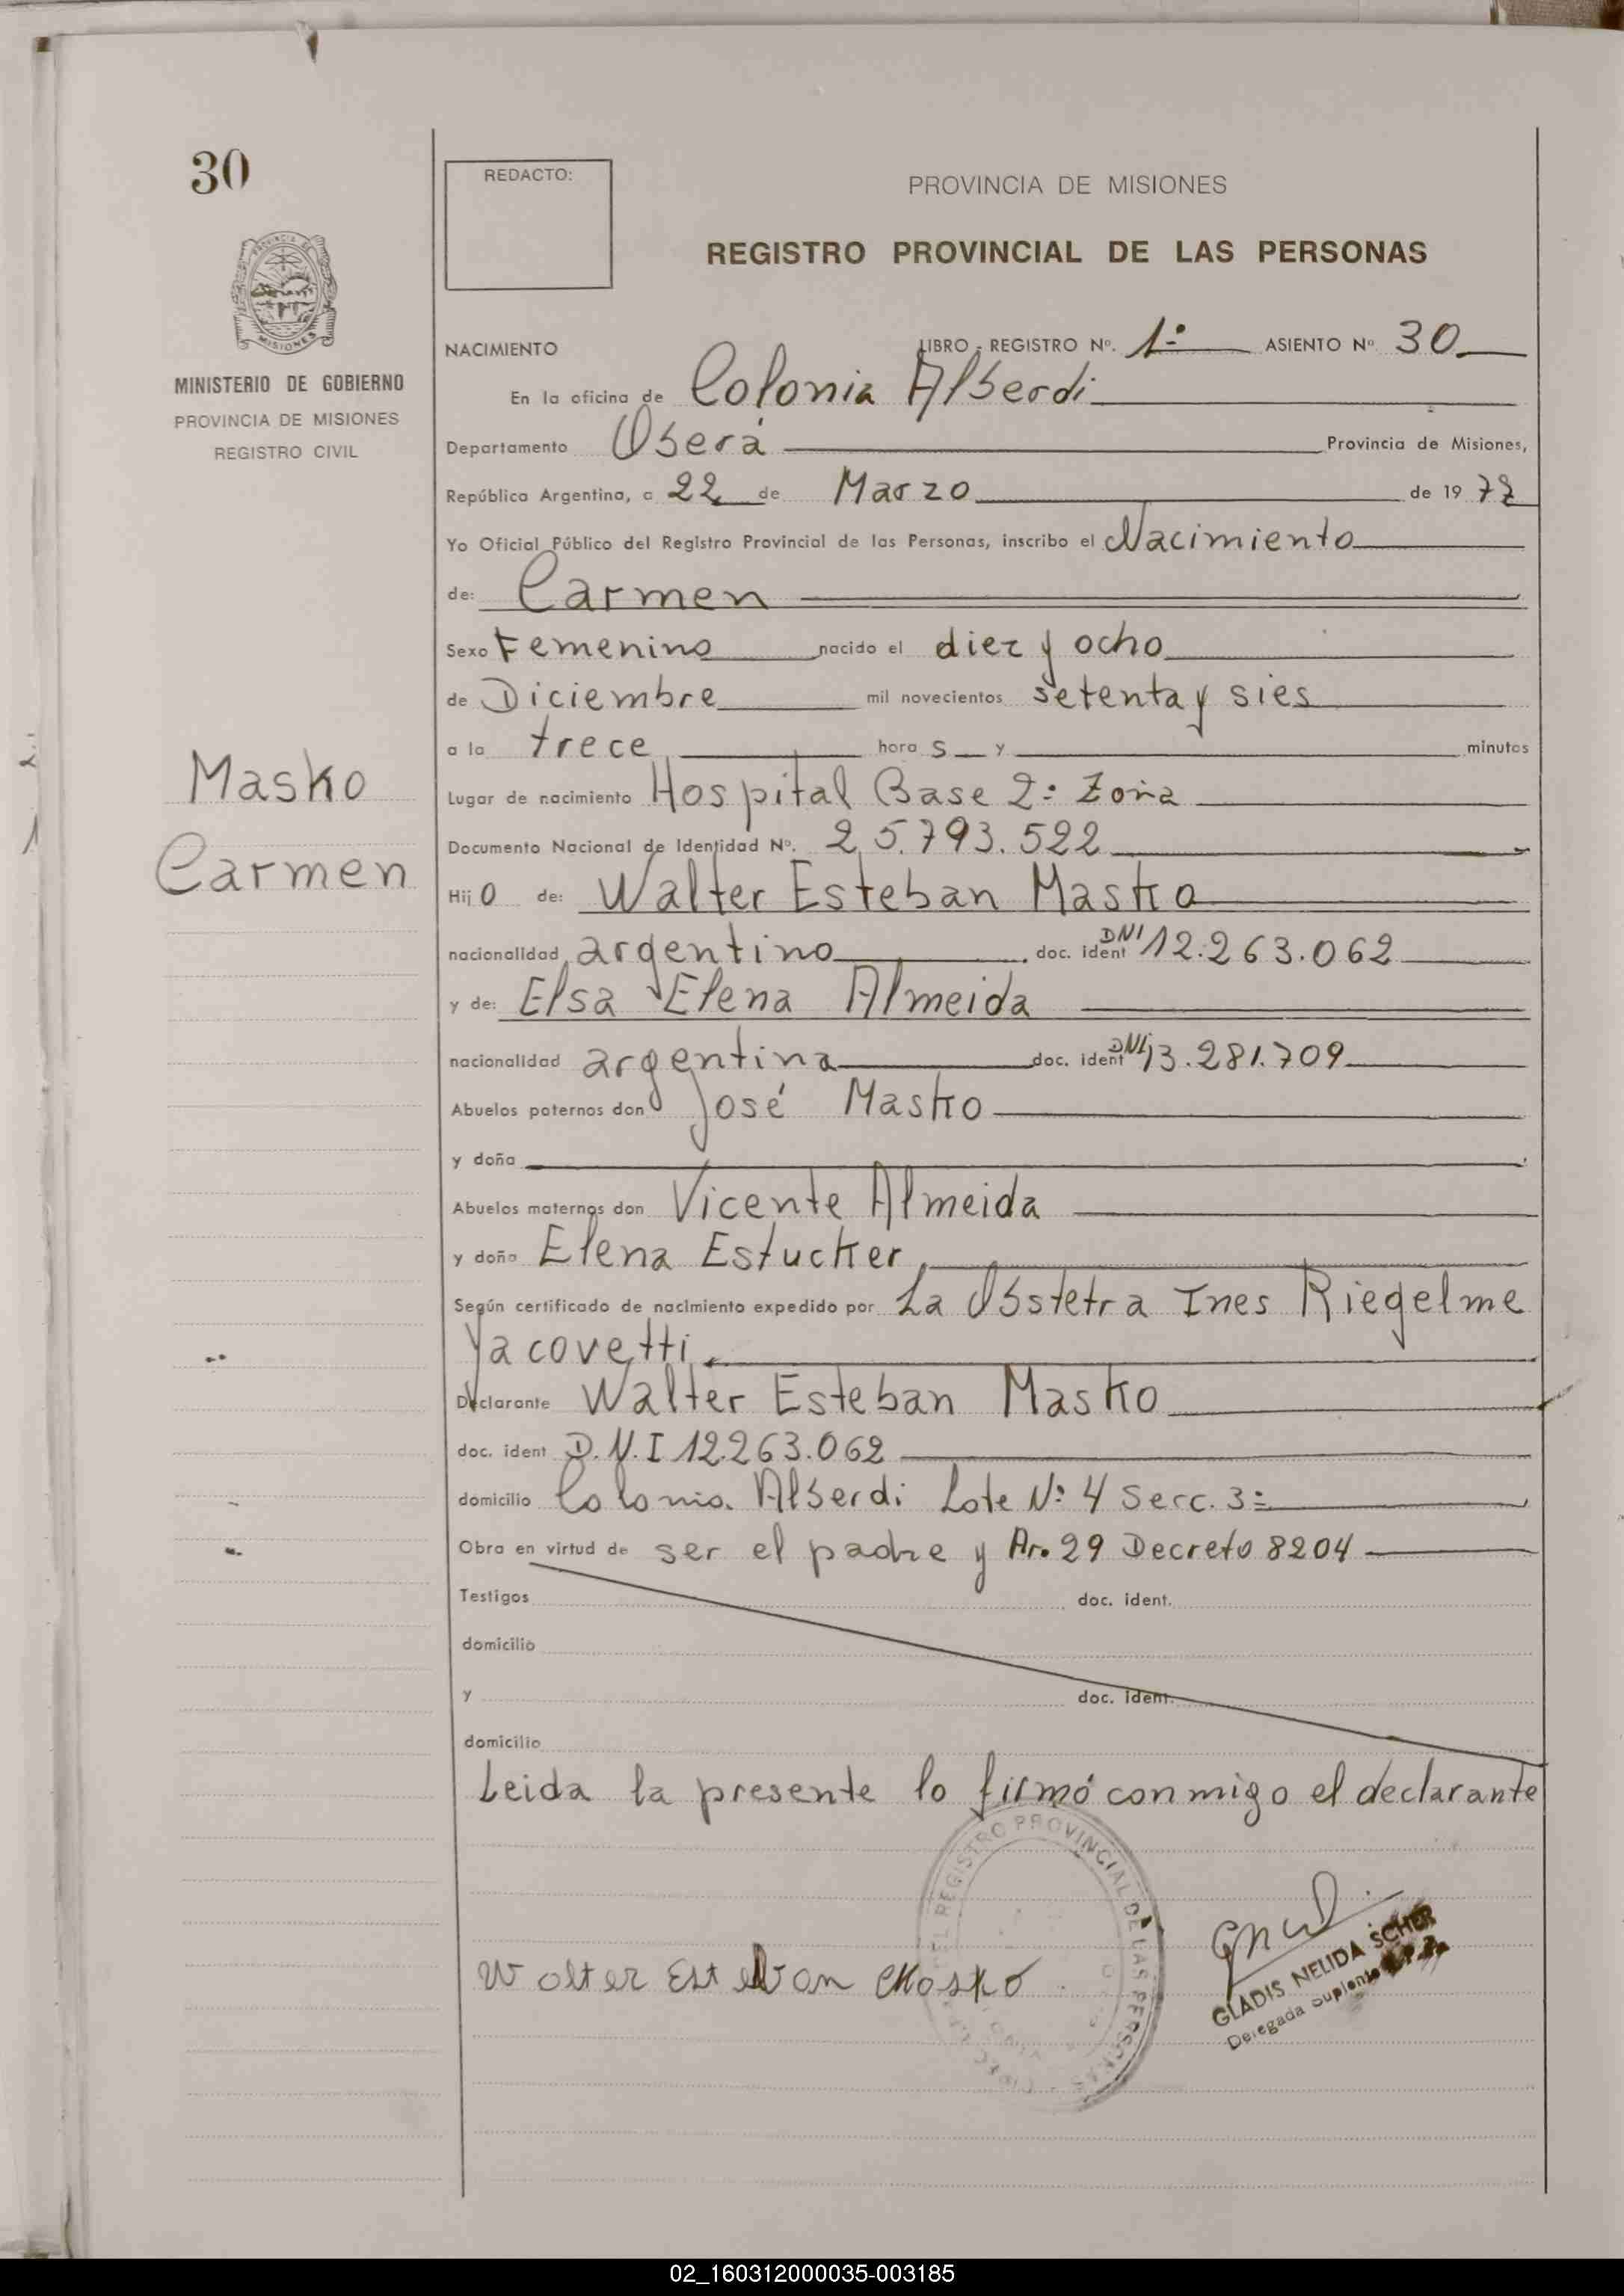 30
REDACTO:
PROVINCIA DE MISIONES
REGISTRO PROVINCIAL DE LAS PERSONAS
MINISTERIO DE GOBIERNO
PROVINCIA DE MISIONES
REGISTRO CIVIL
NACIMIENTO LIBRO - REGISTRO Nº. 1º ASIENTO Nº 30
En la oficina de Colonia Alberdi
Departamento Oberá Provincia de Misiones,
República Argentina, a 22 de Marzo de 19
Yo Oficial Público del Registro Provincial de las Personas, inscribo el Nacimiento
de: Carmen
Sexo Femenino nacido el diez y ocho
de Diciembre mil novecientos setenta y sies
a la trece hora s y minutos
Masko
Lugar de nacimiento Hospital Base 2º Zona
Documento Nacional de Identidad Nº. 25.793.522
Carmen
Hij o de: Walter Esteban Masko
nacionalidad argentino doc. ident DNI 12.263.062
y de: Elsa Elena Almeida
nacionalidad argentina doc. ident DNI 13.281.709
Abuelos paternos don José Masko
y doña
Abuelos maternos don Vicente Almeida
y doña Elena Estucker
Según certificado de nacimiento expedido por La Obstetra Ines Riegelme
Yacovetti.
Declarante Walter Esteban Masko
doc. ident D.N.I 12.263.062
domicilio Colonia Alberdi Lote Nº 4 Secc. 3º
Obra en virtud de ser el padre y Ar. 29 Decreto 8204
Testigos doc. ident.
domicilio
y doc. ident.
domicilio
Leida la presente lo firmó conmigo el declarante
REGISTRO PROVINCIAL DE LAS PERSONAS
Walter Estevan Masko
GLADIS NELIDA SCHER
Delegada Suplente
02_160312000035-003185